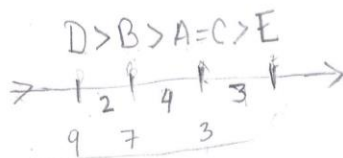 D>B>A=C>E
2 4 3
9 7 3